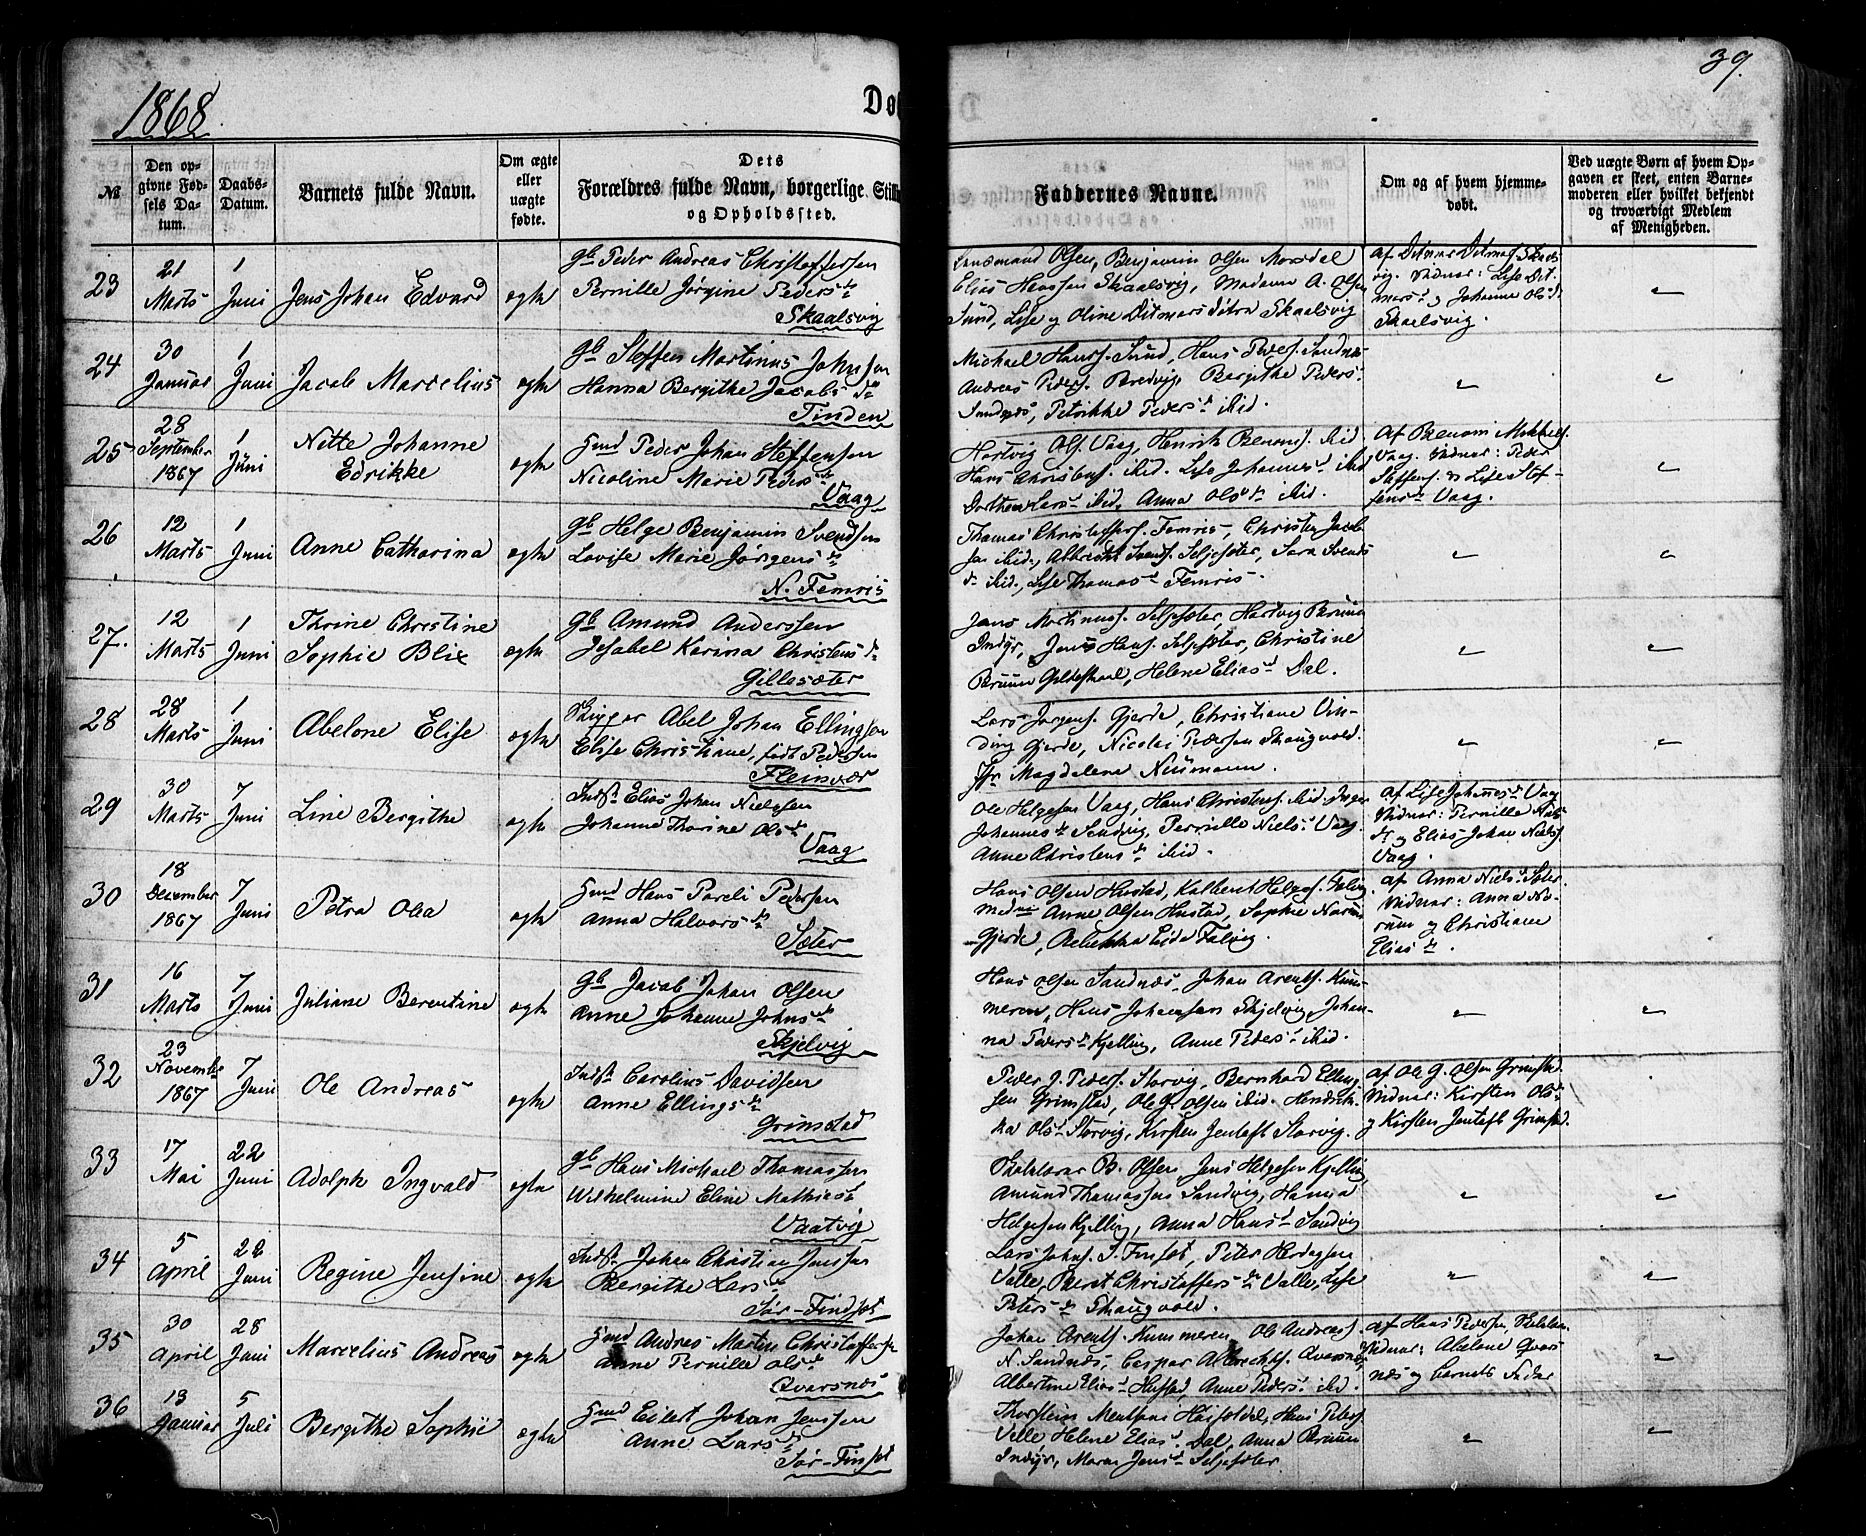 39.
1868
Dø
№
Den op-
givne Fød-
sels Da-
tum.
Daabs-
Datum.
Barnets fulde Navn.
Om ægte
eller
uægte
fødte.
Dets
Forældres fulde Navn, borgerlige Still
og Opholdssted.
Faddernes Navne.
Om og af hvem hjemme-
døbt.
Ved uægte Børn af hvem Op-
gaven er skeet, enten Barne-
moderen eller hvilket bekjendt
og troværdigt Medlem
af Menigheden.
23
21
Marts
1
Juni
Jens Johan Edvard
ægte
Gb Peder Andreas Christoffersen
Pernille Jørgine Peders dr
Skaalsvig
Lensmand Olsen, Benjamin Olsen Morsdal
Elias Hansen Skaalsvig, Madame A. Olsen
Sund, Lise og Oline Ditmarsdøtre Skaalsvig
af Ditmar Ditmars. Skaals-
vig. Vidner: Lise Dit-
mars d og Johanne Ols d
Skaalsvig.
24
30
Januar
1
Juni
Jacob Marcelius
ægte
Gb Steffen Martinus Johnsen
Hanna Bergithe Jacobs dr
Tinden
Michael Hans. Sund, Hans Peders. Sandnes
Andreas Peders. Bredvig, Bergithe Peders
Sandnæs, Petrikke Peders d ibid.
25
28
September
1867
1
Juni
Nitte Johanne
Edrikke
ægte
Gmd Peder Johan Steffensen
Nicoline Marie Peders dr
Vaag
Hartvig Ols. Vaag, Henrik Benoms. ibid
Hans Christens. ibid. Lise Johannes d ibid
Dorthea Lars d ibid, Anna Ols dr ibid.
af Benom Mikkels.
Vaag. Vidner: Peder
Steffens. og Lise Stef-
fens dr Vaag.
26
12
Marts
1
Juni
Anne Catharina
ægte
Gb Helge Benjamin Svendsen
Lovise Marie Jørgens dr
N. Femris
Thomas Christoffers. Femris, Christen Jacob-
sen ibid., Albrecht Svends. Seljesæter, Sara Svends
dr ibid., Lise Thomas d Femris.
27.
12
Marts
1
Juni
Thrine Christine
Sophie Blix
ægte
Gb Amund Anderssen
Jesabel Karina Christens dr
Gillesæter
Jens Martinus. Seljesæter, Hartvig Bruun
Indyr, Jens Hans. Seljesæter, Christine
Bruun Gildeskaal, Helene Elias d Dal.
28
28
Marts
1
Juni
Abelone Elise
ægte
Skipper Abel Johan Ellingsen
Elise Christiane, født Pedersen
Fleinvær
Lars Jørgens. Gjerde, Christiane Vin-
ding Gjerde, Nicolai Pedersen Skaugvold.
Jfr Magdalena Neumann.
29
30
Marts
7
Juni
Line Bergithe
ægte
Indst Elias Johan Nielssen
Johanne Thorine Ols dr
Vaag
Ole Helgesen Vaag, Hans Christens. ibid, Inger
Johannes dr Sandvig, Pernille Niels d Vaag.
Anne Christens dr ibid.
af Lise Johannes dr Vaag
Vidner: Pernille Niels
dr og Elias Johan Niels.
Vaag.
30
18
December
1867
7
Juni
Petra Olea
ægte
Gmd Hans Pareli Pedersen
Anna Halvors dr
Sæter
Hans Olsen Hustad, Kalbent Helges. Falvig
Anne Olsen Hustad, Sophie Norum
Gjerde, Rebekka Eide Falvig.
af Anna Niels d Sæter.
Vidner: Anna No-
rum og Christiane
Elias dr.
31
16
Marts
7
Juni
Juliane Berentine
ægte
Gb Jacob Johan Olsen
Anne Johanne Johns dr
Skjelvig
Hans Olsen Sandnæs. Johan Arents. Kun-
meren, Hans Johansen Skjelvig, Johan-
na Peders dr Kjelling, Anne Peders d ibid.
32
23
November
1867
7
Juni
Ole Andreas
ægte
Indst Carolius Davidsen
Anne Ellings dr
Grimstad
Peder J. Peders. Storvig, Bernhard Elling-
sen Grimstad, Ole G. Olsen ibid. Hendrik-
ka Ols d Storvig, Kirsten Jentoft Storvig.
af Ole G. Olsen Grimstad
Vidner: Kirsten Ols dr
og Kirsten Jentoft Grimstad.
33
17
Mai
22
Juni
Adolph Ingvald
ægte
Gb Hans Michael Thomassen
Wilhelmine Eline Mathias d
Vaatvig
Skolelærer B. Olsen, Jens Helgesen Kjelling
Amund Thomassen Sandvig, Hanna
Helgesen Kjelling, Anna Hans d Sandvig
34
5
April
22
Juni
Regine Jensine
ægte
Indst. Johan Christian Jenssen
Bergithe Lars dr
Sør-Findset
Lars Johns. S. Finset, Peter Hedegsen
Valle, Beret Christoffers dr Valle, Lise
Peters dr Skaugvold.
35
30
April
28
Juni
Marcelius Andreas
ægte
Gmd Andreas Martin Christoffersen
Anne Pernille Ols dr
Qvarsnæs
Johan Arents. Kunmeren, Ole Andreas.
N. Sandnæs, Caspar Albrechts. Qvarsnæs,
Albertine Elias d Hustad, Anne Peders d ibid.
af Hans Pedersen,
Vidner: Abelone Qvars-
næs og barnets Fader
36
13
Januar
5
Juli
Bergithe Sophie
ægte
Gmd Eilert Johan Jenssen
Anne Lars dr
Sør-Finset
Thorstein Hans Peters.
Valle, Helene Elias d Dal, Anna Bruun
Indyr, Maren Jens d Seljesæter